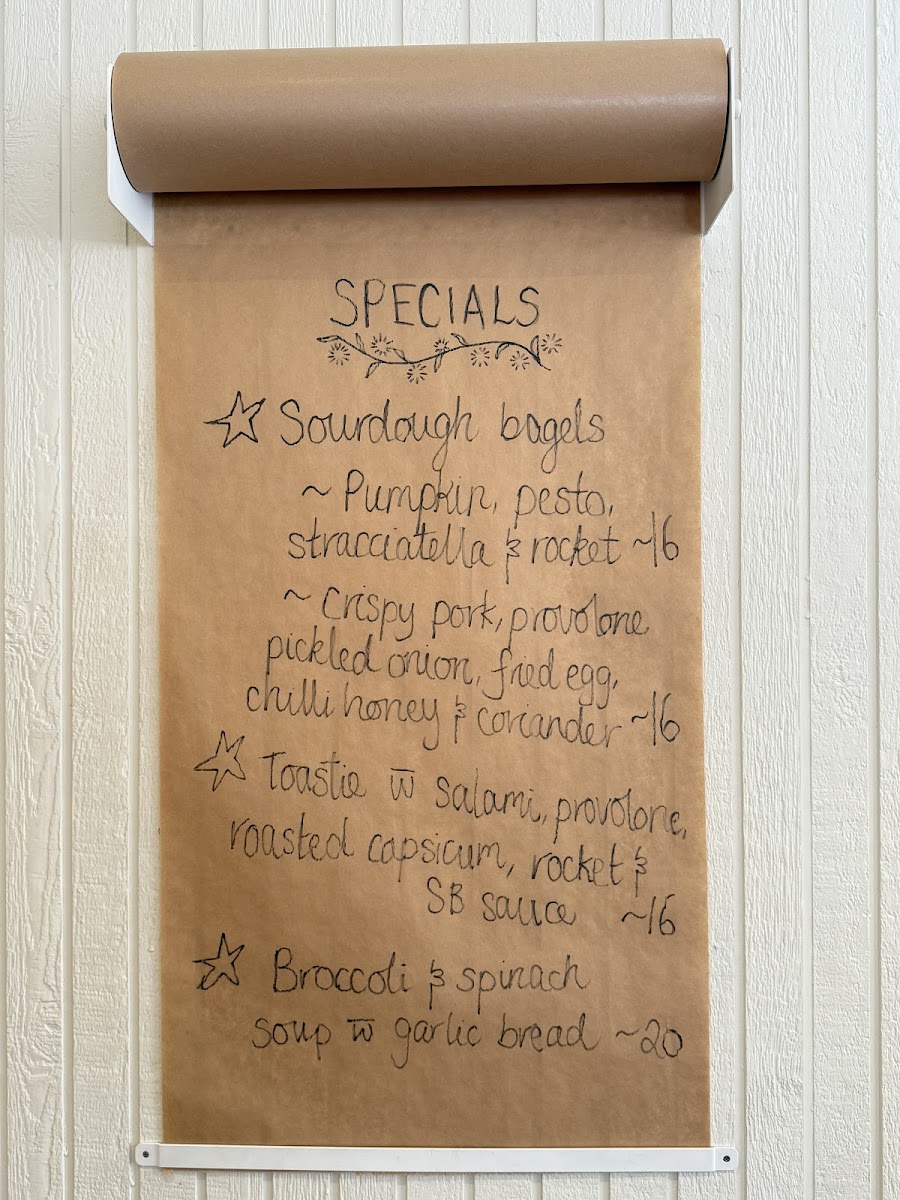 SPECIALS
☆ Sourdough bagels
~ Pumpkin, pesto,
stracciatella & rocket ~16
~ Crispy pork, provolone
pickled onion, fried egg,
chilli honey & coriander ~16
☆ Toastie w̅ salami, provolone,
roasted capsicum, rocket &
SB sauce ~16
☆ Broccoli & spinach
soup w̅ garlic bread ~20